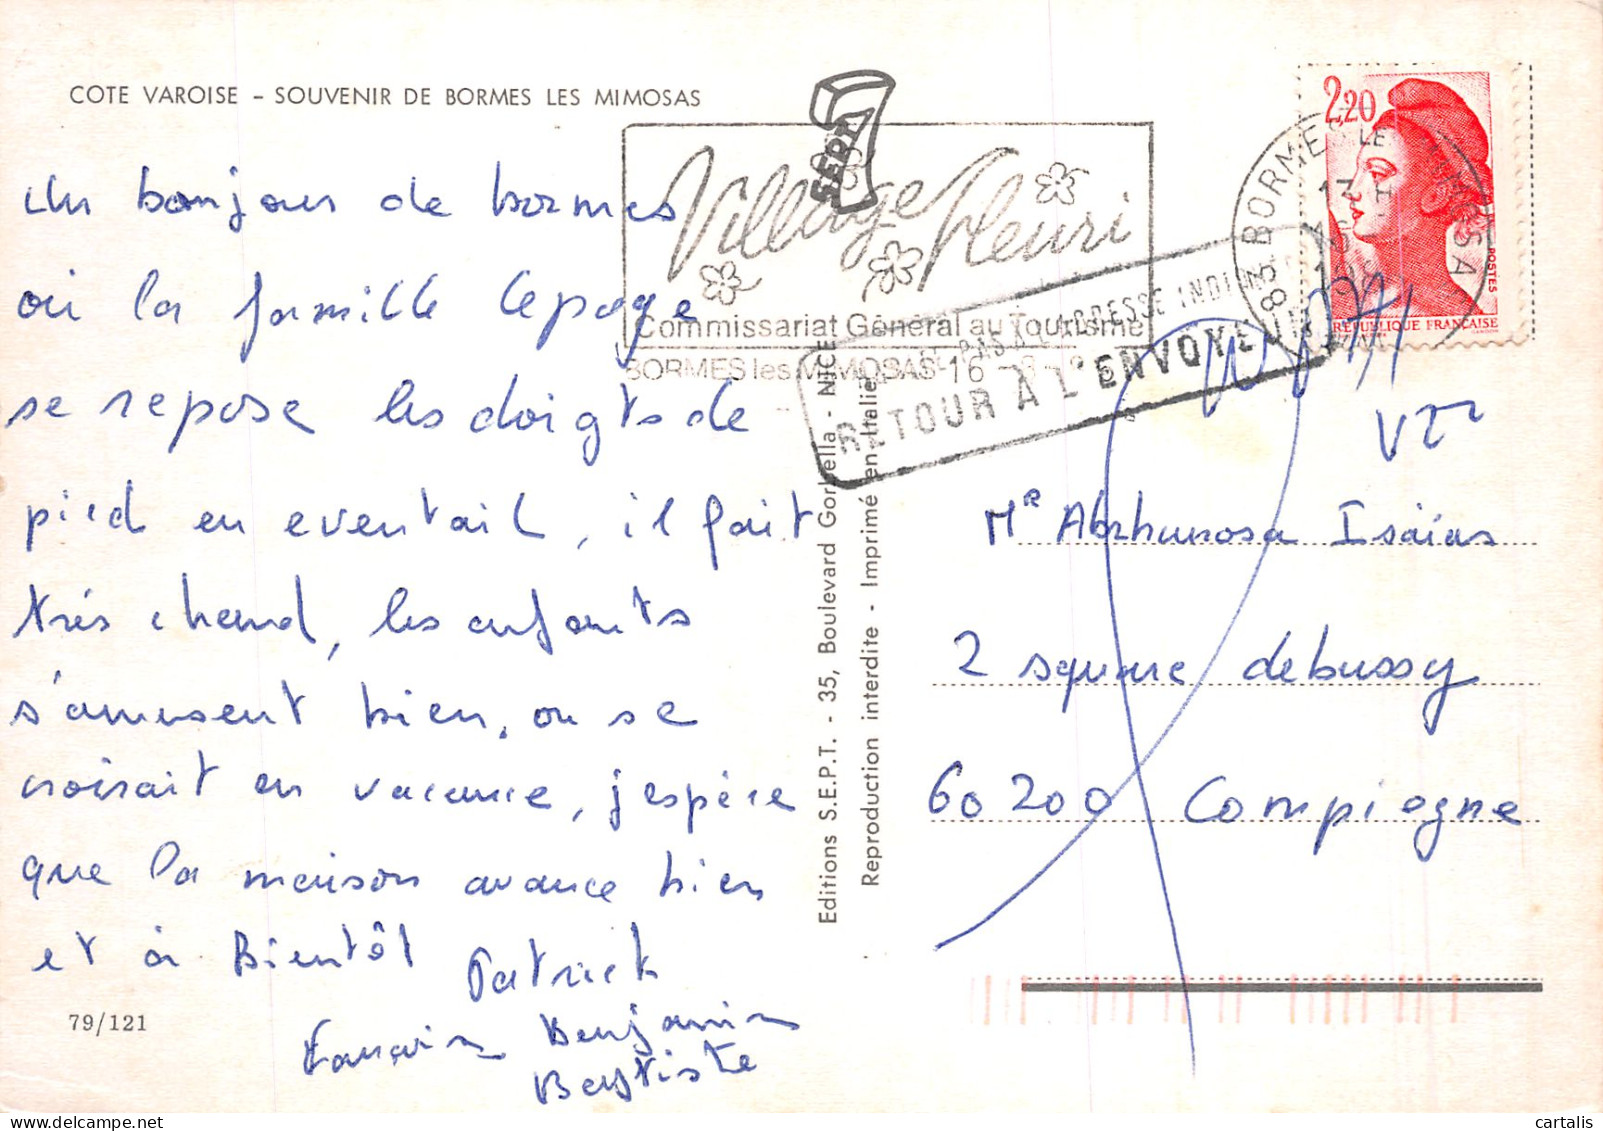 COTE VAROISE - SOUVENIR DE BORMES LES MIMOSAS
Un bonjour de bormes
où la famille lepage
se repose les doigts de
pied en eventail, il fait
très chaud, les enfants
s'amusent bien, on se
croirait en vacance, j'espère
que la maison avance bien
et à Bientôt Patrick
Benjamin
Baptiste
79/121
SEPT
Village fleuri
Commissariat Général au Tourisme
BORMES les MIMOSAS 16
PAS A L'ADRESSE INDI
RETOUR A L'ENVOYEUR
83 BORMES LES MIMOSAS
2,20
POSTES
REPUBLIQUE FRANCAISE
Editions S.E.P.T. - 35, Boulevard Gorbella - NICE
Reproduction interdite - Imprimé en Italie
Mr Abrhunosa Isaïas
2 square debussy
60200 Compiegne
cartalis.com